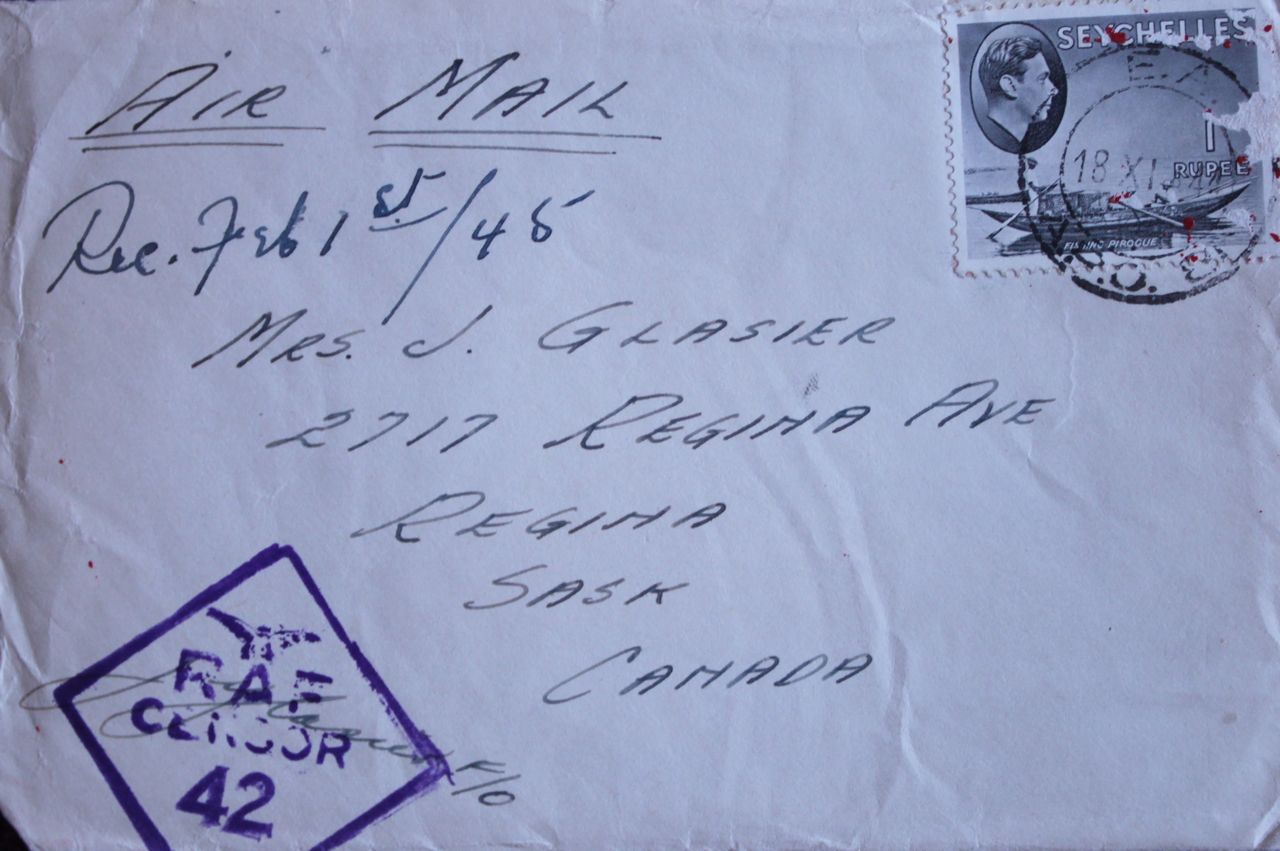 AIR MAIL
Rec. Feb 1st/45
MRS. J. GLASIER
2717 REGINA AVE
REGINA
SASK
CANADA
SEYCHELLES
1
RUPEE
FISHING PIROGUE
E.A.
18 XI
P.O.
RAF
CENSOR
42
F/O